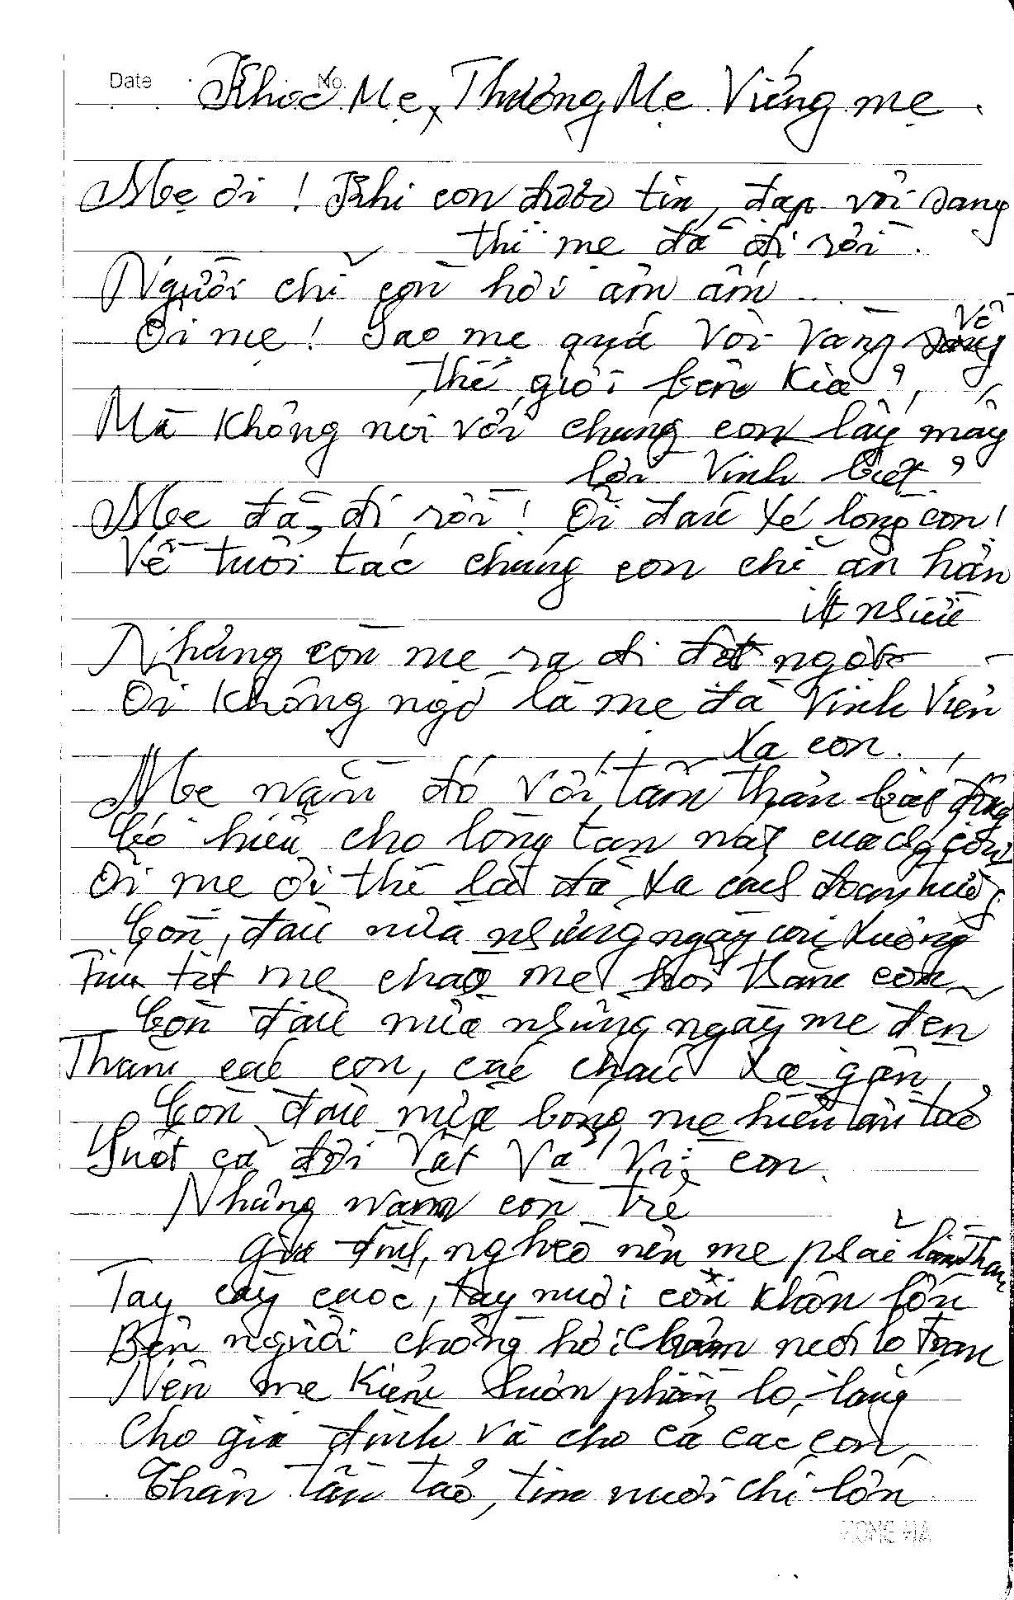 Date No.
Khóc Mẹ, Thương Mẹ Viếng mẹ.
Mẹ ơi! Khi con được tin, đạp vội sang
thì mẹ đã đi rồi.
Người chỉ còn hơi âm ấm...
Ôi mẹ! Sao mẹ quá vội vàng về
thế giới bên kia?
Mà không nói với chúng con lấy mấy
lời Vĩnh biệt?
Mẹ đã đi rồi! Ôi đau xé lòng con!
Về tuổi tác chúng con chỉ ân hận
ít nhiều
Nhưng còn mẹ ra đi đột ngột
Ôi không ngờ là mẹ đã Vĩnh Viễn
xa con.
Mẹ nằm đó với tấm thân bất động
Có hiểu cho lòng tan nát của các con
Ôi mẹ ơi thế là đã xa cách đoạn
Còn đâu nữa những ngày xuống
tết mẹ chào mẹ hỏi thăm con
Còn đâu nữa những ngày mẹ đến
Thăm các con, các cháu xa gần,
Còn đâu nữa bóng mẹ hiền tần tảo
Suốt cả đời Vất Vả Vì con.
Những năm còn trẻ
Gia đình nghèo nên mẹ phải làm
Tay cày cuốc, tay nuôi con khôn lớn
Bên người chồng hơi chậm nơi lo toan
Nên mẹ luôn phần lo lắng
Cho gia đình và cho cả các con,
Thân tần tảo, tìm nuôi chí lớn
HONG HA